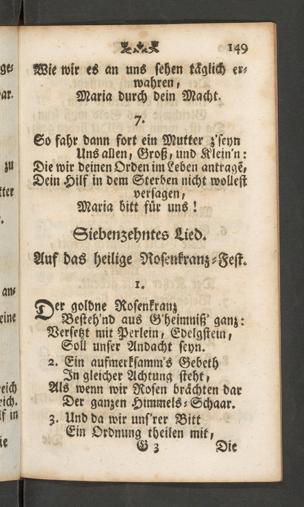 149
Wie wir es an uns sehen täglich er-
wahren,
Maria durch dein Macht.
7.
So fahr dann fort ein Mutter z'seyn
Uns allen, Groß, und Klein'n:
Die wir deinen Orden im Leben antragē,
Dein Hilf in dem Sterben nicht wollest
versagen,
Maria bitt für uns!
Siebenzehntes Lied.
Auf das heilige Rosenkranz-Fest.
1.
Der goldne Rosenkranz
Besteh'nd aus G'heimniß' ganz:
Versetzt mit Perlein, Edelgstein,
Soll unser Andacht seyn.
2. Ein aufmerksamm's Gebeth
In gleicher Achtung steht,
Als wenn wir Rosen brächten dar
Der ganzen Himmels-Schaar.
3. Und da wir uns'rer Bitt
Ein Ordnung theilen mit,
G 3 Die